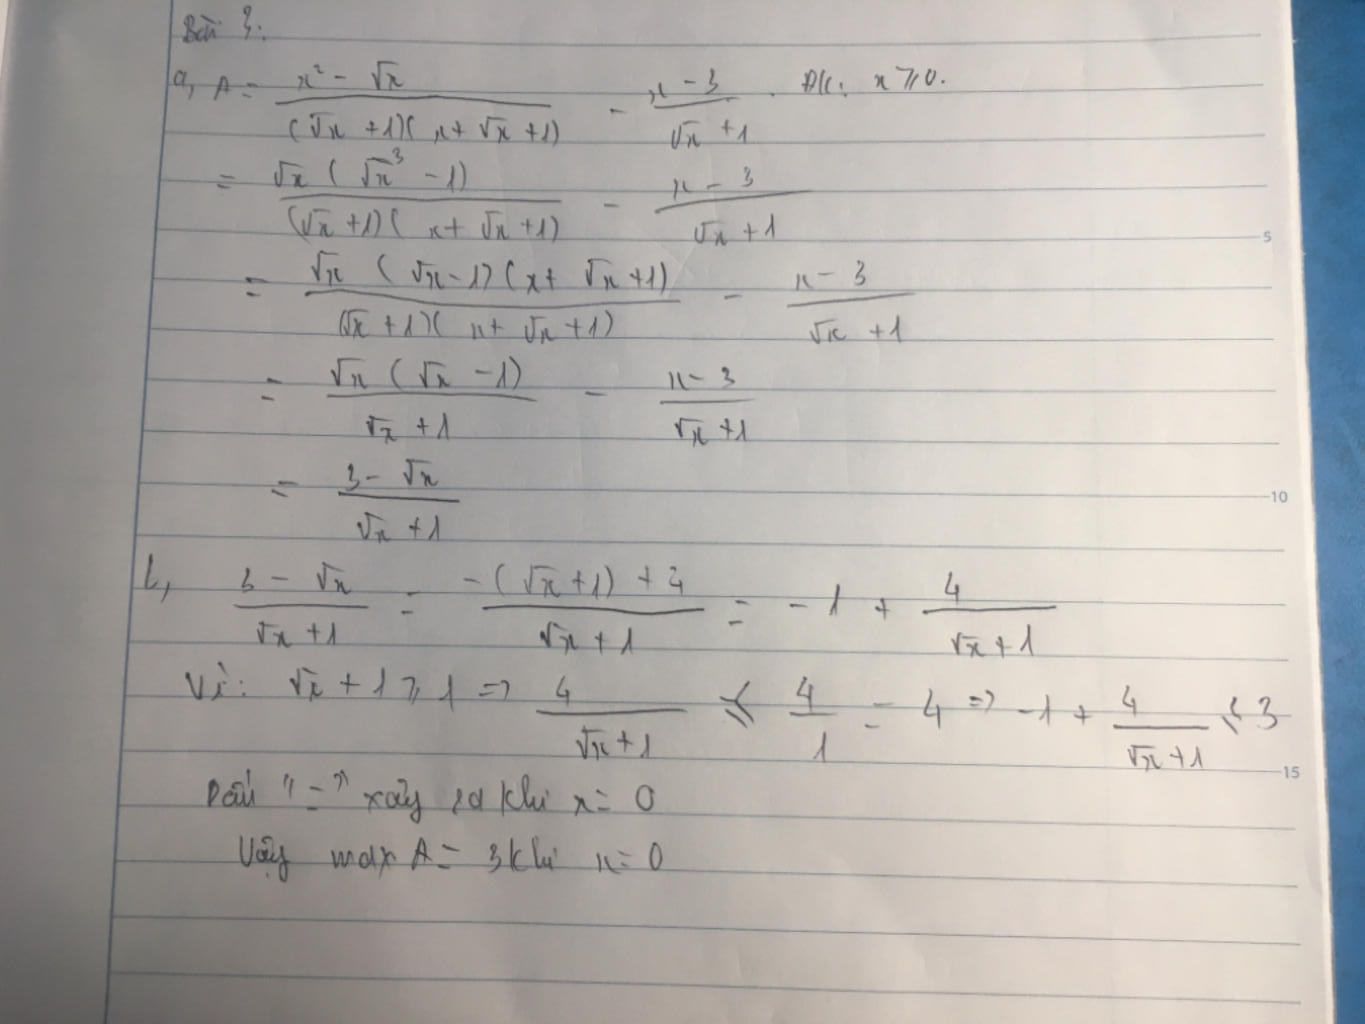 Bài 3:
a, A = \frac{x² - √x}{(√x + 1)(x + √x + 1)} - \frac{x - 3}{√x + 1} . ĐK: x ⩾ 0.
= \frac{√x (√x³ - 1)}{(√x + 1)(x + √x + 1)} - \frac{x - 3}{√x + 1}
= \frac{√x (√x - 1)(x + √x + 1)}{(√x + 1)(x + √x + 1)} - \frac{x - 3}{√x + 1}
= \frac{√x (√x - 1)}{√x + 1} - \frac{x - 3}{√x + 1}
= \frac{3 - √x}{√x + 1}
b, \frac{3 - √x}{√x + 1} = \frac{-(√x + 1) + 4}{√x + 1} = -1 + \frac{4}{√x + 1}
Vì: √x + 1 ⩾ 1 => \frac{4}{√x + 1} ⩽ \frac{4}{1} = 4 => -1 + \frac{4}{√x + 1} ⩽ 3
Dấu "=" xảy ra khi x = 0
Vậy max A = 3 khi x = 0
5
10
15